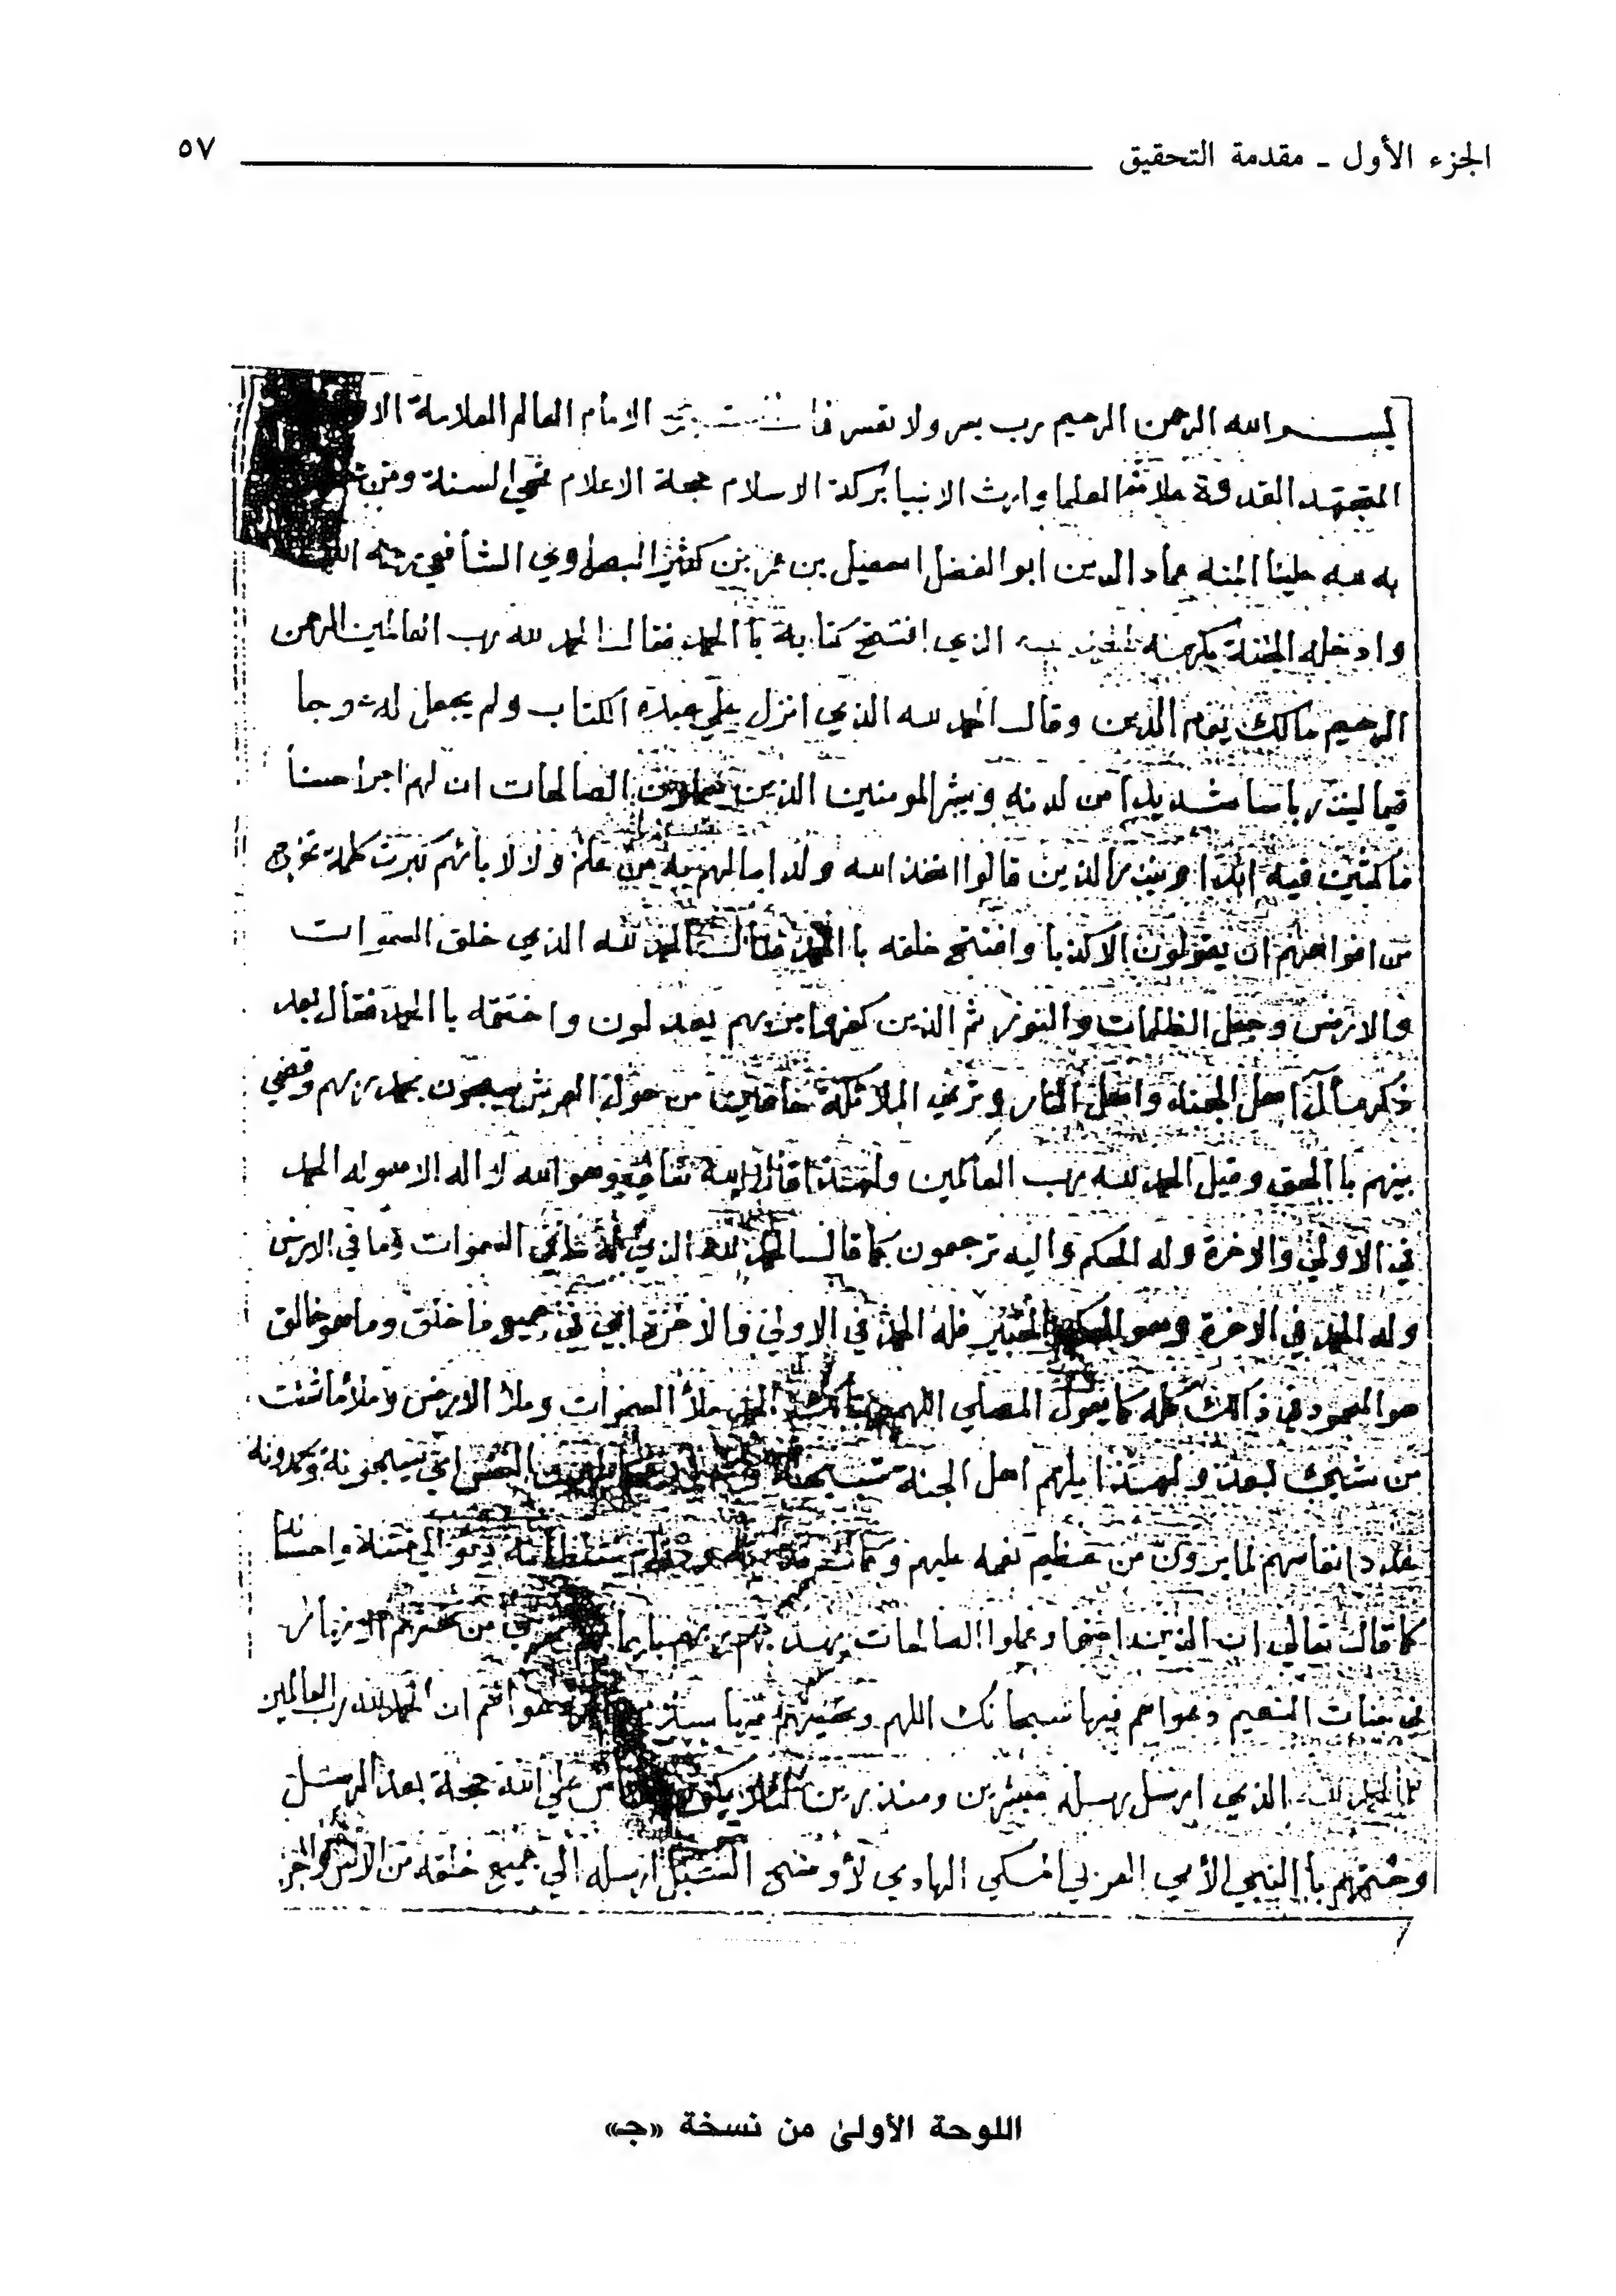 الجزء الأول ـ مقدمة التحقيق ٥٧
بسم الله الرحمن الرحيم رب يسر ولا تعسر الامام العالم العلامة
المجتهد القدوة علامة العلما وارث الانبيا بركة الاسلام حجة الاعلام محي السنة ومن
به لله علينا المنه عماد الدين ابو الفضل اسمعيل بن عمر بن كثير البصراوي الشافعي
وادخله الجنة بكرمه الذي افتتح كتابه باالحمد فقال الحمد لله رب العالمين الرحمن
الرحيم مالك يوم الدين وقال الحمد لله الذي انزل علي عبده الكتاب ولم يجعل له عوجا
قيما لينذر باسا شديدا من لدنه ويبشر المومنين الذين يعملون الصالحات ان لهم اجرا حسنا
ماكثين فيه ابدا وينذر الذين قالوا اتخذ الله ولدا مالهم به من علم ولا لابائهم كبرت كلمة تخرج
من افواههم ان يقولون الا كذبا وافتتح خلقه باالحمد فقال الحمد لله الذي خلق السموات
والارض وجعل الظلمات والنور ثم الذين كفروا بربهم يعدلون واختتمه باالحمد فقال بعد
ذكر مآل اهل الجنة واهل النار وتري الملائكة حافين من حول العرش يسبحون بحمد ربهم وقضي
بينهم باالحق وقيل الحمد لله رب العالمين ولهذا قال الله تعالي وهو الله لا اله الا هو له الحمد
في الاولي والاخرة وله الحكم واليه ترجعون كما قال الحمد لله الذي له ما في السموات وما في الارض
وله الحمد في الاخرة وهو الحكيم الخبير فله الحمد في الاولي والاخرة اي في جميع ما خلق وما هو خالق
هو المحمود في ذالك كله كما يقول المصلي اللهم ربنا لك الحمد ملأ السموات وملأ الارض وملأ ما شئت
من شيء بعد ولهذا يلهم اهل الجنة تسبيحه النفس اي يسبحونه ويحمدونه
عدد انفاسهم لما يرون من عظيم نعمه عليهم
كما قال تعالي ان الذين امنوا وعملوا الصالحات يهديهم ربهم بايمانهم تجري من تحتهم الانهار
في جنات النعيم دعواهم فيها سبحانك اللهم وتحيتهم فيها سلام دعواهم ان الحمد لله رب العالمين
الذي ارسل رسله مبشرين ومنذرين لئلا يكون للناس علي الله حجة بعد الرسل
وختمهم باالنبي الأمي العربي المكي الهادي لأوضح السبل ارسله الي جميع خلقه من الانس والجن
اللوحة الأولىٰ من نسخة «جـ»